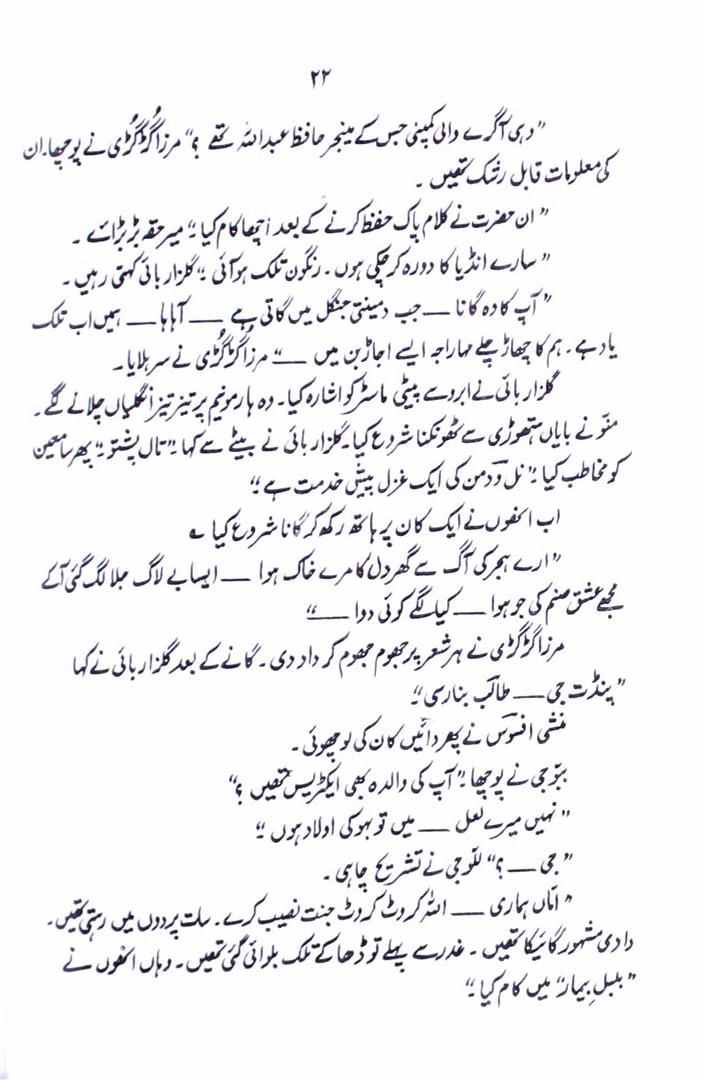 ۲۲
"وہی آگرے والی کمپنی جس کے مینیجر حافظ عبداللہ تھے ؟" مرزا گڑگڑی نے پوچھا۔ ان
کی معلومات قابل رشک تھیں ۔
"ان حضرت نے کلام پاک حفظ کرنے کے بعد اچھا کام کیا۔" میر حقہ بڑبڑائے ۔
"سارے انڈیا کا دورہ کر چکی ہوں ۔ رنگون تلک ہو آئی ۔" گلزار بائی کہتی رہیں ۔
"آپ کا وہ گانا — جب دمینتی جنگل میں گاتی ہے — آہاہا — ہمیں اب تلک
یاد ہے ۔ ہم کا چھاڑ چلے مہاراجہ ایسے اجاڑ بن میں —" مرزا گڑگڑی نے سر ہلایا۔
گلزار بائی نے ابرو سے پیٹی ماسٹر کو اشارہ کیا۔ وہ ہارمونیم پر تیز تیز انگلیاں چلانے لگے۔
منّو نے بایاں ہتھوڑی سے ٹھونکنا شروع کیا۔ گلزار بائی نے بیٹے سے کہا۔ "تال پشتو۔" پھر سامعین
کو مخاطب کیا۔ "نل و دمن کی ایک غزل پیش خدمت ہے۔"
اب انھوں نے ایک کان پر ہاتھ رکھ کر گانا شروع کیا ؎
"ارے ہجر کی آگ سے گھر دل کا مرے خاک ہوا — ایسا بے لاگ جلا لگ گئی آ کے
مجھے عشق صنم کی جو ہوا — کیا لگے کوئی دوا —"
مرزا گڑگڑی نے ہر شعر پر جھوم جھوم کر داد دی ۔ گانے کے بعد گلزار بائی نے کہا
"پنڈت جی — طالب بنارسی۔"
منشی افسوس نے پھر دائیں کان کی لو چھوئی ۔
ببّو جی نے پوچھا۔ "آپ کی والدہ بھی ایکٹریس تھیں ؟"
"نہیں میرے لعل — میں تو بہو کی اولاد ہوں۔"
"جی — ؟" للّو جی نے تشریح چاہی ۔
"امّاں ہماری — اللہ کروٹ کروٹ جنت نصیب کرے۔ سات پردوں میں رہتی تھیں۔
دادی مشہور گائیکا تھیں ۔ غدر سے پہلے تو ڈھاکے تلک بلوائی گئی تھیں۔ وہاں انھوں نے
"بلبلِ بیمار" میں کام کیا۔"